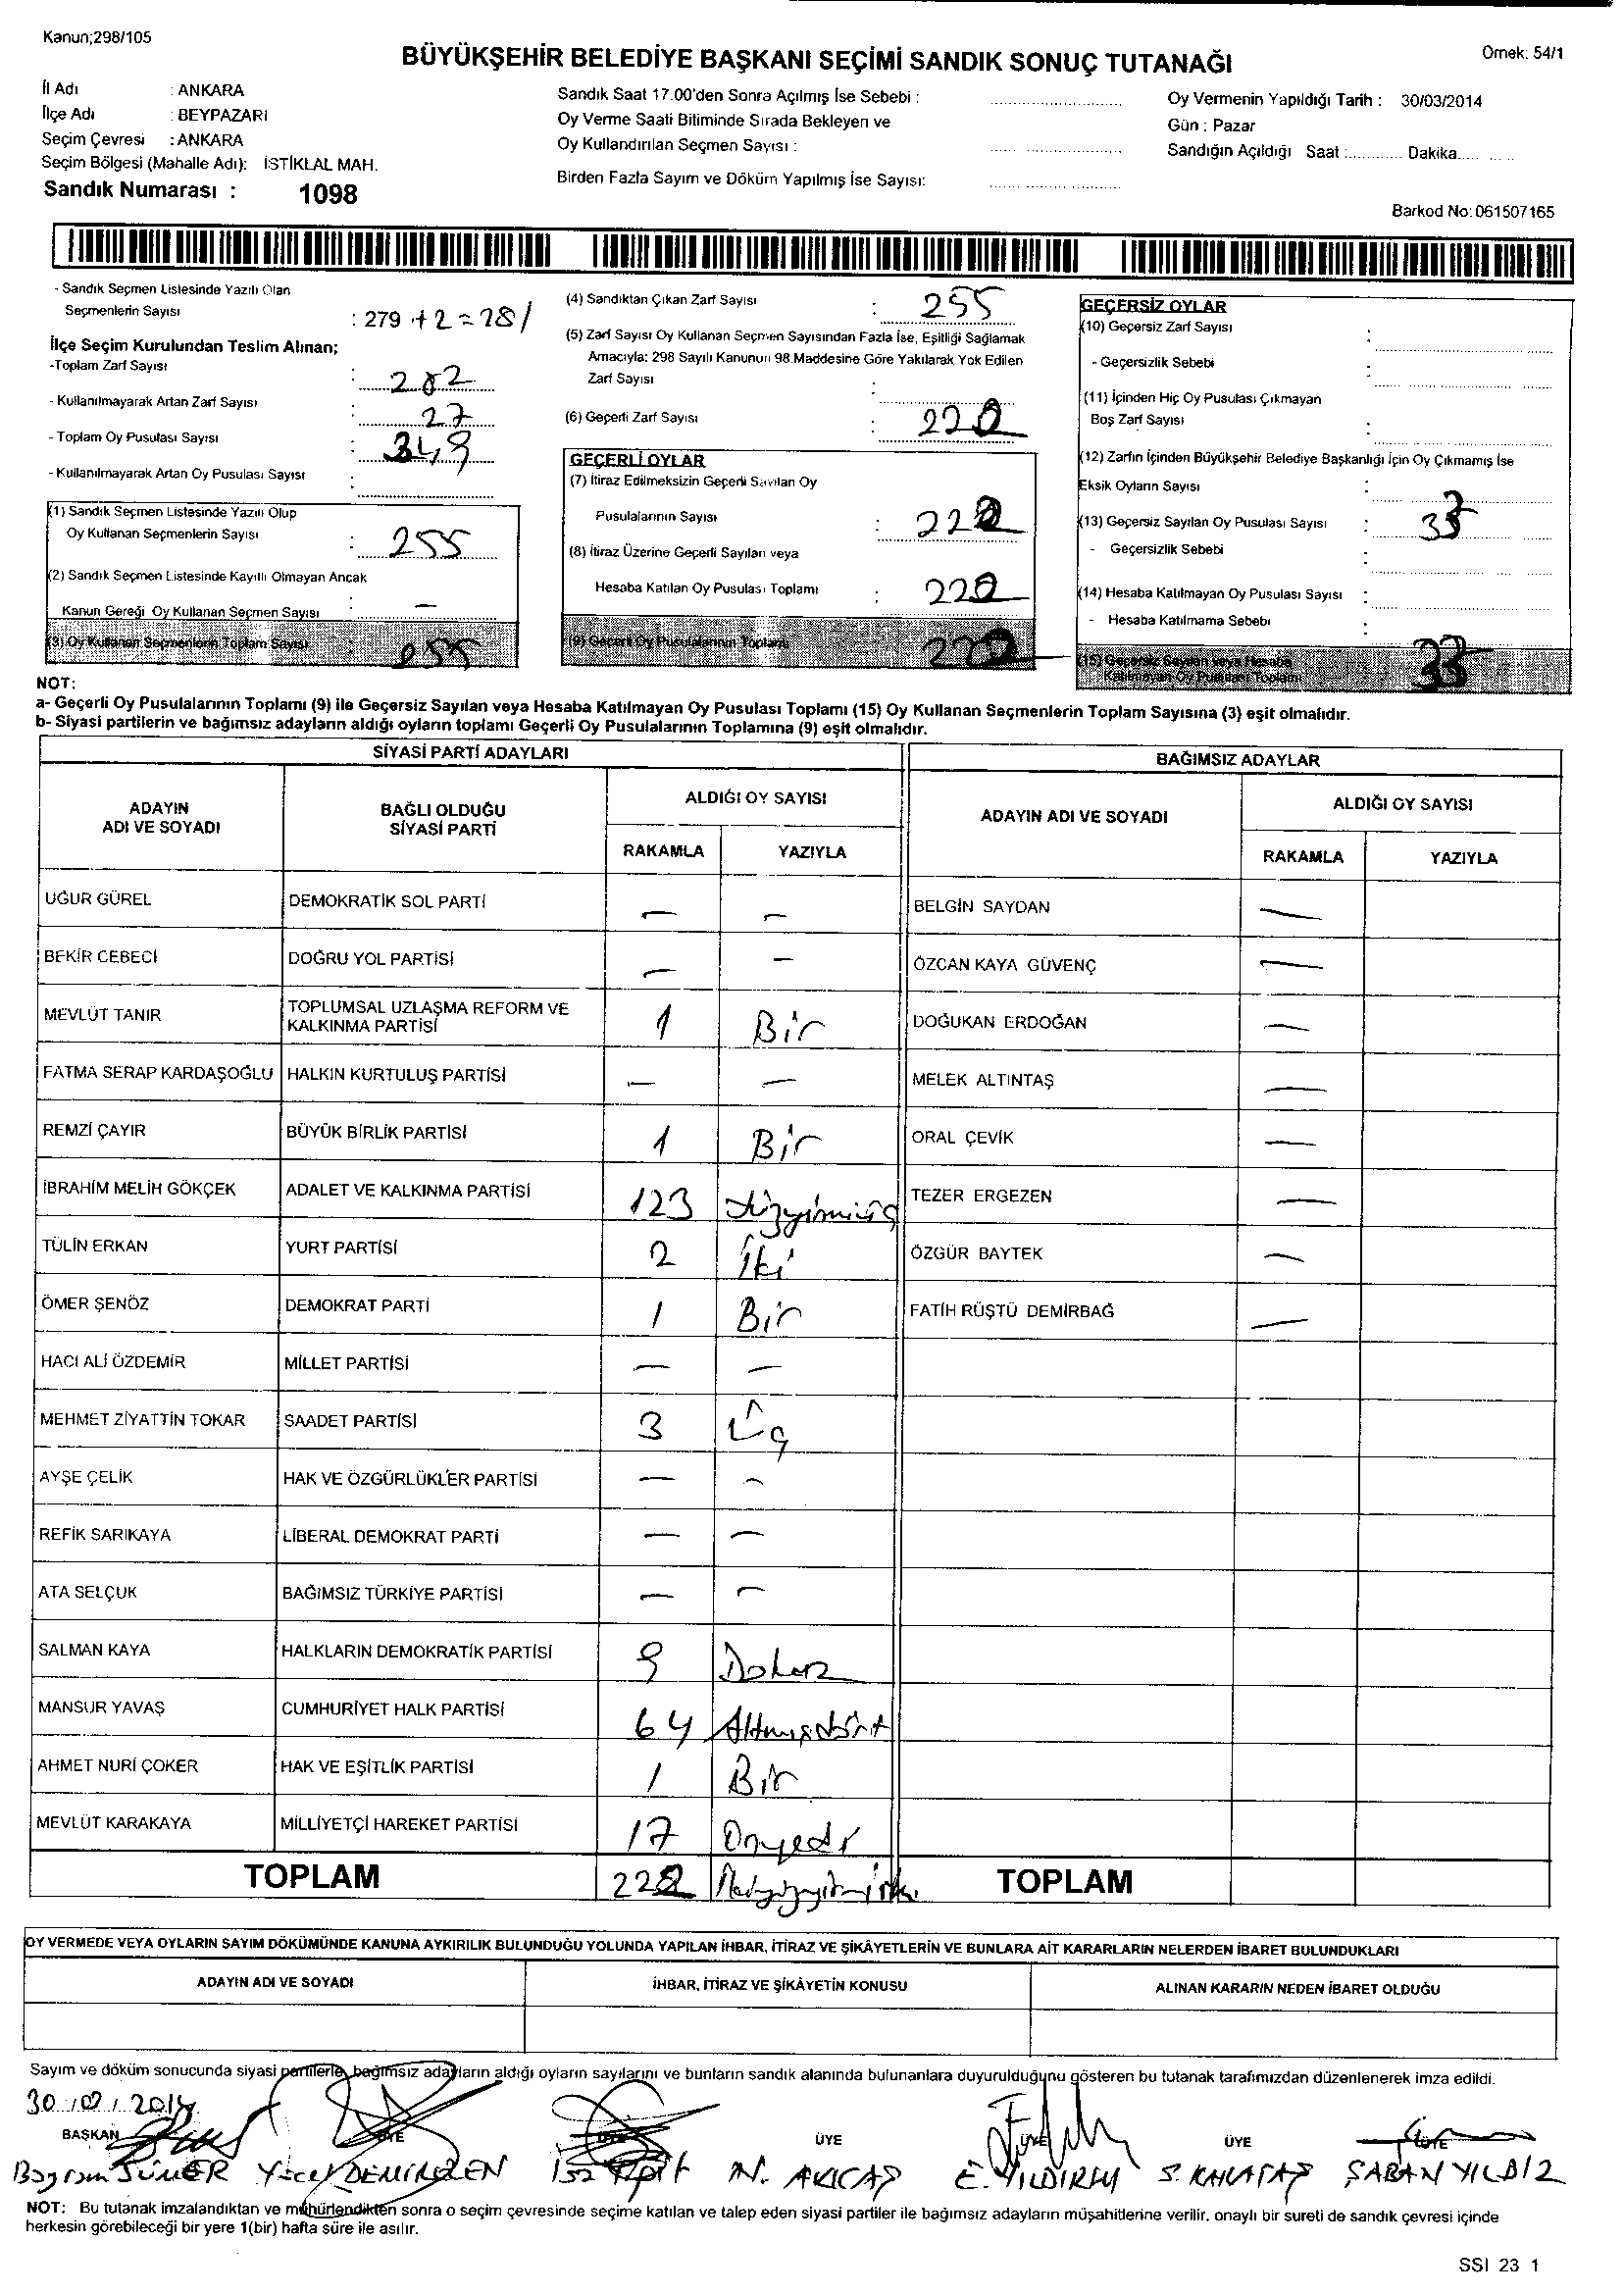 Kanun;298/105
BÜYÜKŞEHİR BELEDİYE BAŞKANI SEÇİMİ SANDIK SONUÇ TUTANAĞI
Örnek: 54/1
İl Adı : ANKARA
İlçe Adı : BEYPAZARI
Seçim Çevresi : ANKARA
Seçim Bölgesi (Mahalle Adı): İSTİKLAL MAH.
Sandık Numarası : 1098
Sandık Saat 17.00'den Sonra Açılmış İse Sebebi :
Oy Verme Saati Bitiminde Sırada Bekleyen ve
Oy Kullandırılan Seçmen Sayısı :
Birden Fazla Sayım ve Döküm Yapılmış İse Sayısı:
Oy Vermenin Yapıldığı Tarih : 30/03/2014
Gün : Pazar
Sandığın Açıldığı Saat :............ Dakika..........
Barkod No: 061507165
- Sandık Seçmen Listesinde Yazılı Olan
Seçmenlerin Sayısı : 279 +2=281
İlçe Seçim Kurulundan Teslim Alınan;
-Toplam Zarf Sayısı : 282
- Kullanılmayarak Artan Zarf Sayısı : 27
- Toplam Oy Pusulası Sayısı : 349
- Kullanılmayarak Artan Oy Pusulası Sayısı :
(1) Sandık Seçmen Listesinde Yazılı Olup
Oy Kullanan Seçmenlerin Sayısı : 255
(2) Sandık Seçmen Listesinde Kayıtlı Olmayan Ancak
Kanun Gereği Oy Kullanan Seçmen Sayısı : —
(3) Oy Kullanan Seçmenlerin Toplam Sayısı : 255
(4) Sandıktan Çıkan Zarf Sayısı : 255
(5) Zarf Sayısı Oy Kullanan Seçmen Sayısından Fazla İse, Eşitliği Sağlamak
Amacıyla: 298 Sayılı Kanunun 98.Maddesine Göre Yakılarak Yok Edilen
Zarf Sayısı :
(6) Geçerli Zarf Sayısı : 222
GEÇERLİ OYLAR
(7) İtiraz Edilmeksizin Geçerli Sayılan Oy
Pusulalarının Sayısı : 222
(8) İtiraz Üzerine Geçerli Sayılan veya
Hesaba Katılan Oy Pusulası Toplamı : 222
(9) Geçerli Oy Pusulalarının Toplamı 222
GEÇERSİZ OYLAR
(10) Geçersiz Zarf Sayısı :
- Geçersizlik Sebebi :
(11) İçinden Hiç Oy Pusulası Çıkmayan
Boş Zarf Sayısı :
(12) Zarfın İçinden Büyükşehir Belediye Başkanlığı İçin Oy Çıkmamış İse
Eksik Oyların Sayısı :
(13) Geçersiz Sayılan Oy Pusulası Sayısı : 33
- Geçersizlik Sebebi :
(14) Hesaba Katılmayan Oy Pusulası Sayısı :
- Hesaba Katılmama Sebebi :
(15) Geçersiz Sayılan veya Hesaba
Katılmayan Oy Pusulası Toplamı 33
NOT:
a- Geçerli Oy Pusulalarının Toplamı (9) ile Geçersiz Sayılan veya Hesaba Katılmayan Oy Pusulası Toplamı (15) Oy Kullanan Seçmenlerin Toplam Sayısına (3) eşit olmalıdır.
b- Siyasi partilerin ve bağımsız adayların aldığı oyların toplamı Geçerli Oy Pusulalarının Toplamına (9) eşit olmalıdır.
SİYASİ PARTİ ADAYLARI
ADAYIN ADI VE SOYADI
BAĞLI OLDUĞU SİYASİ PARTİ
ALDIĞI OY SAYISI
RAKAMLA YAZIYLA
UĞUR GÜREL DEMOKRATİK SOL PARTİ — —
BEKİR CEBECİ DOĞRU YOL PARTİSİ — —
MEVLÜT TANIR TOPLUMSAL UZLAŞMA REFORM VE KALKINMA PARTİSİ 1 Bir
FATMA SERAP KARDAŞOĞLU HALKIN KURTULUŞ PARTİSİ — —
REMZİ ÇAYIR BÜYÜK BİRLİK PARTİSİ 1 Bir
İBRAHİM MELİH GÖKÇEK ADALET VE KALKINMA PARTİSİ 123
TÜLİN ERKAN YURT PARTİSİ 2 İki
ÖMER ŞENÖZ DEMOKRAT PARTİ 1 Bir
HACI ALİ ÖZDEMİR MİLLET PARTİSİ — —
MEHMET ZİYATTİN TOKAR SAADET PARTİSİ 3 Üç
AYŞE ÇELİK HAK VE ÖZGÜRLÜKLER PARTİSİ — —
REFİK SARIKAYA LİBERAL DEMOKRAT PARTİ — —
ATA SELÇUK BAĞIMSIZ TÜRKİYE PARTİSİ — —
SALMAN KAYA HALKLARIN DEMOKRATİK PARTİSİ 9 Dokuz
MANSUR YAVAŞ CUMHURİYET HALK PARTİSİ 64 Altmışdört
AHMET NURİ ÇOKER HAK VE EŞİTLİK PARTİSİ 1 Bir
MEVLÜT KARAKAYA MİLLİYETÇİ HAREKET PARTİSİ 17 Onyedi
TOPLAM 222
BAĞIMSIZ ADAYLAR
ADAYIN ADI VE SOYADI
ALDIĞI OY SAYISI
RAKAMLA YAZIYLA
BELGİN SAYDAN —
ÖZCAN KAYA GÜVENÇ —
DOĞUKAN ERDOĞAN —
MELEK ALTINTAŞ —
ORAL ÇEVİK —
TEZER ERGEZEN —
ÖZGÜR BAYTEK —
FATİH RÜŞTÜ DEMİRBAĞ —
TOPLAM
OY VERMEDE VEYA OYLARIN SAYIM DÖKÜMÜNDE KANUNA AYKIRILIK BULUNDUĞU YOLUNDA YAPILAN İHBAR, İTİRAZ VE ŞİKÂYETLERİN VE BUNLARA AİT KARARLARIN NELERDEN İBARET BULUNDUKLARI
ADAYIN ADI VE SOYADI
İHBAR, İTİRAZ VE ŞİKÂYETİN KONUSU
ALINAN KARARIN NEDEN İBARET OLDUĞU
Sayım ve döküm sonucunda siyasi partilerle, bağımsız adayların aldığı oyların sayılarını ve bunların sandık alanında bulunanlara duyurulduğunu gösteren bu tutanak tarafımızdan düzenlenerek imza edildi.
BAŞKAN ÜYE ÜYE ÜYE ÜYE ÜYE ÜYE
Bayram SÜMER Yücel N. AKICAŞ E. YILDIRIM S. ŞABAN YILDIZ
NOT: Bu tutanak imzalandıktan ve mühürlendikten sonra o seçim çevresinde seçime katılan ve talep eden siyasi partiler ile bağımsız adayların müşahitlerine verilir. onaylı bir sureti de sandık çevresi içinde
herkesin görebileceği bir yere 1(bir) hafta süre ile asılır.
SSI 23 1